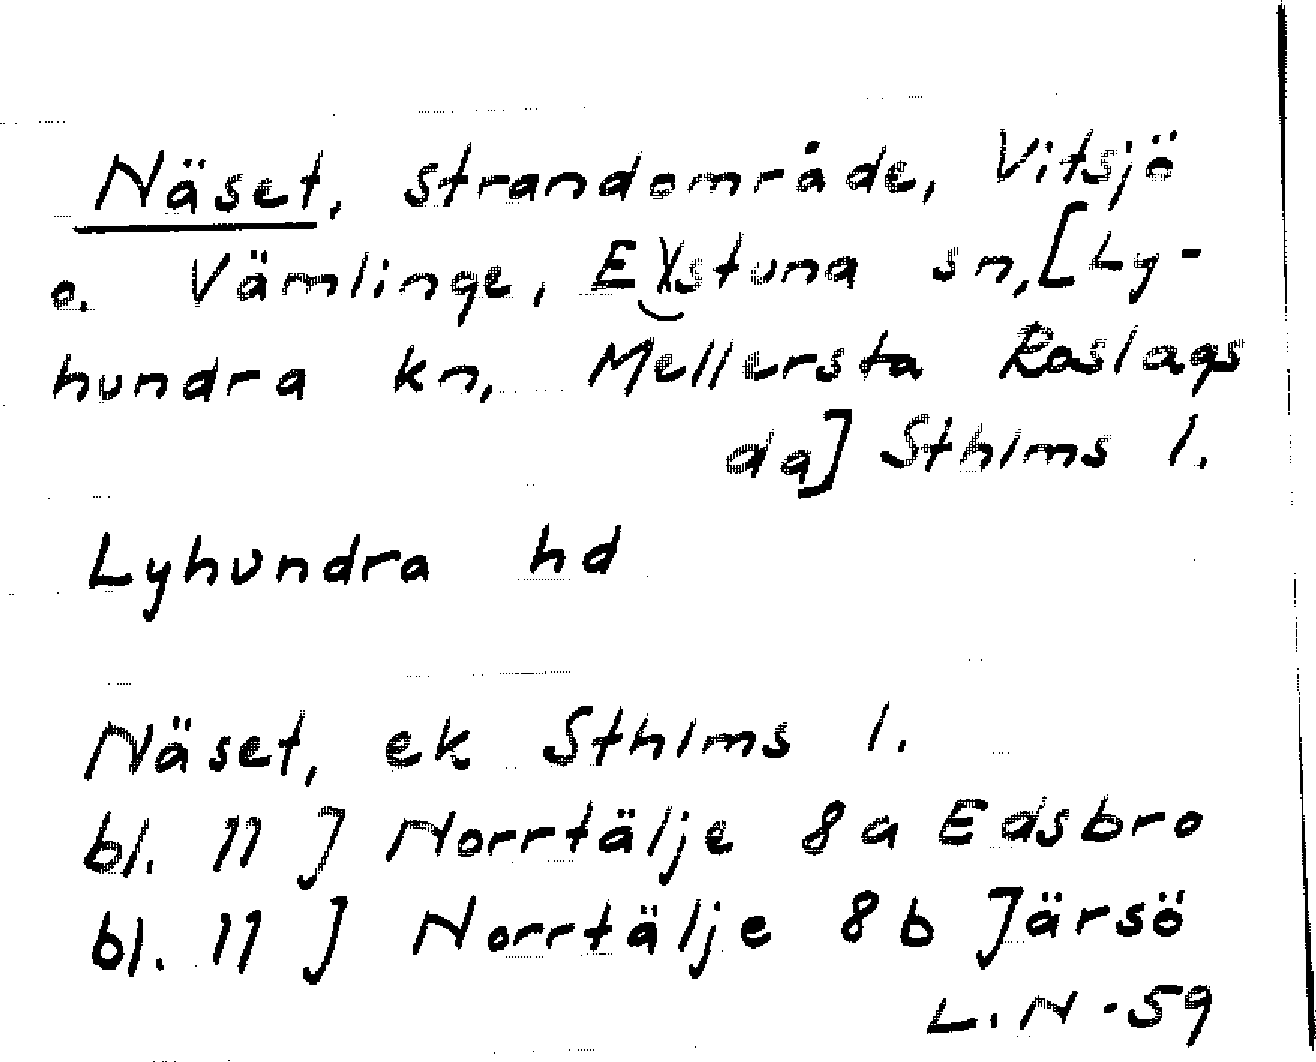 Näset, strandområde, Vitsjö
o. Vämlinge, Estuna sn, [Ly-
hundra kn, Mellersta Roslags
da] Sthlms l.
Lyhundra hd
Näset, ek Sthlms l.
bl. 11 J Norrtälje 8a Edsbro
bl. 11 J Norrtälje 8b Järsö
L.N-59